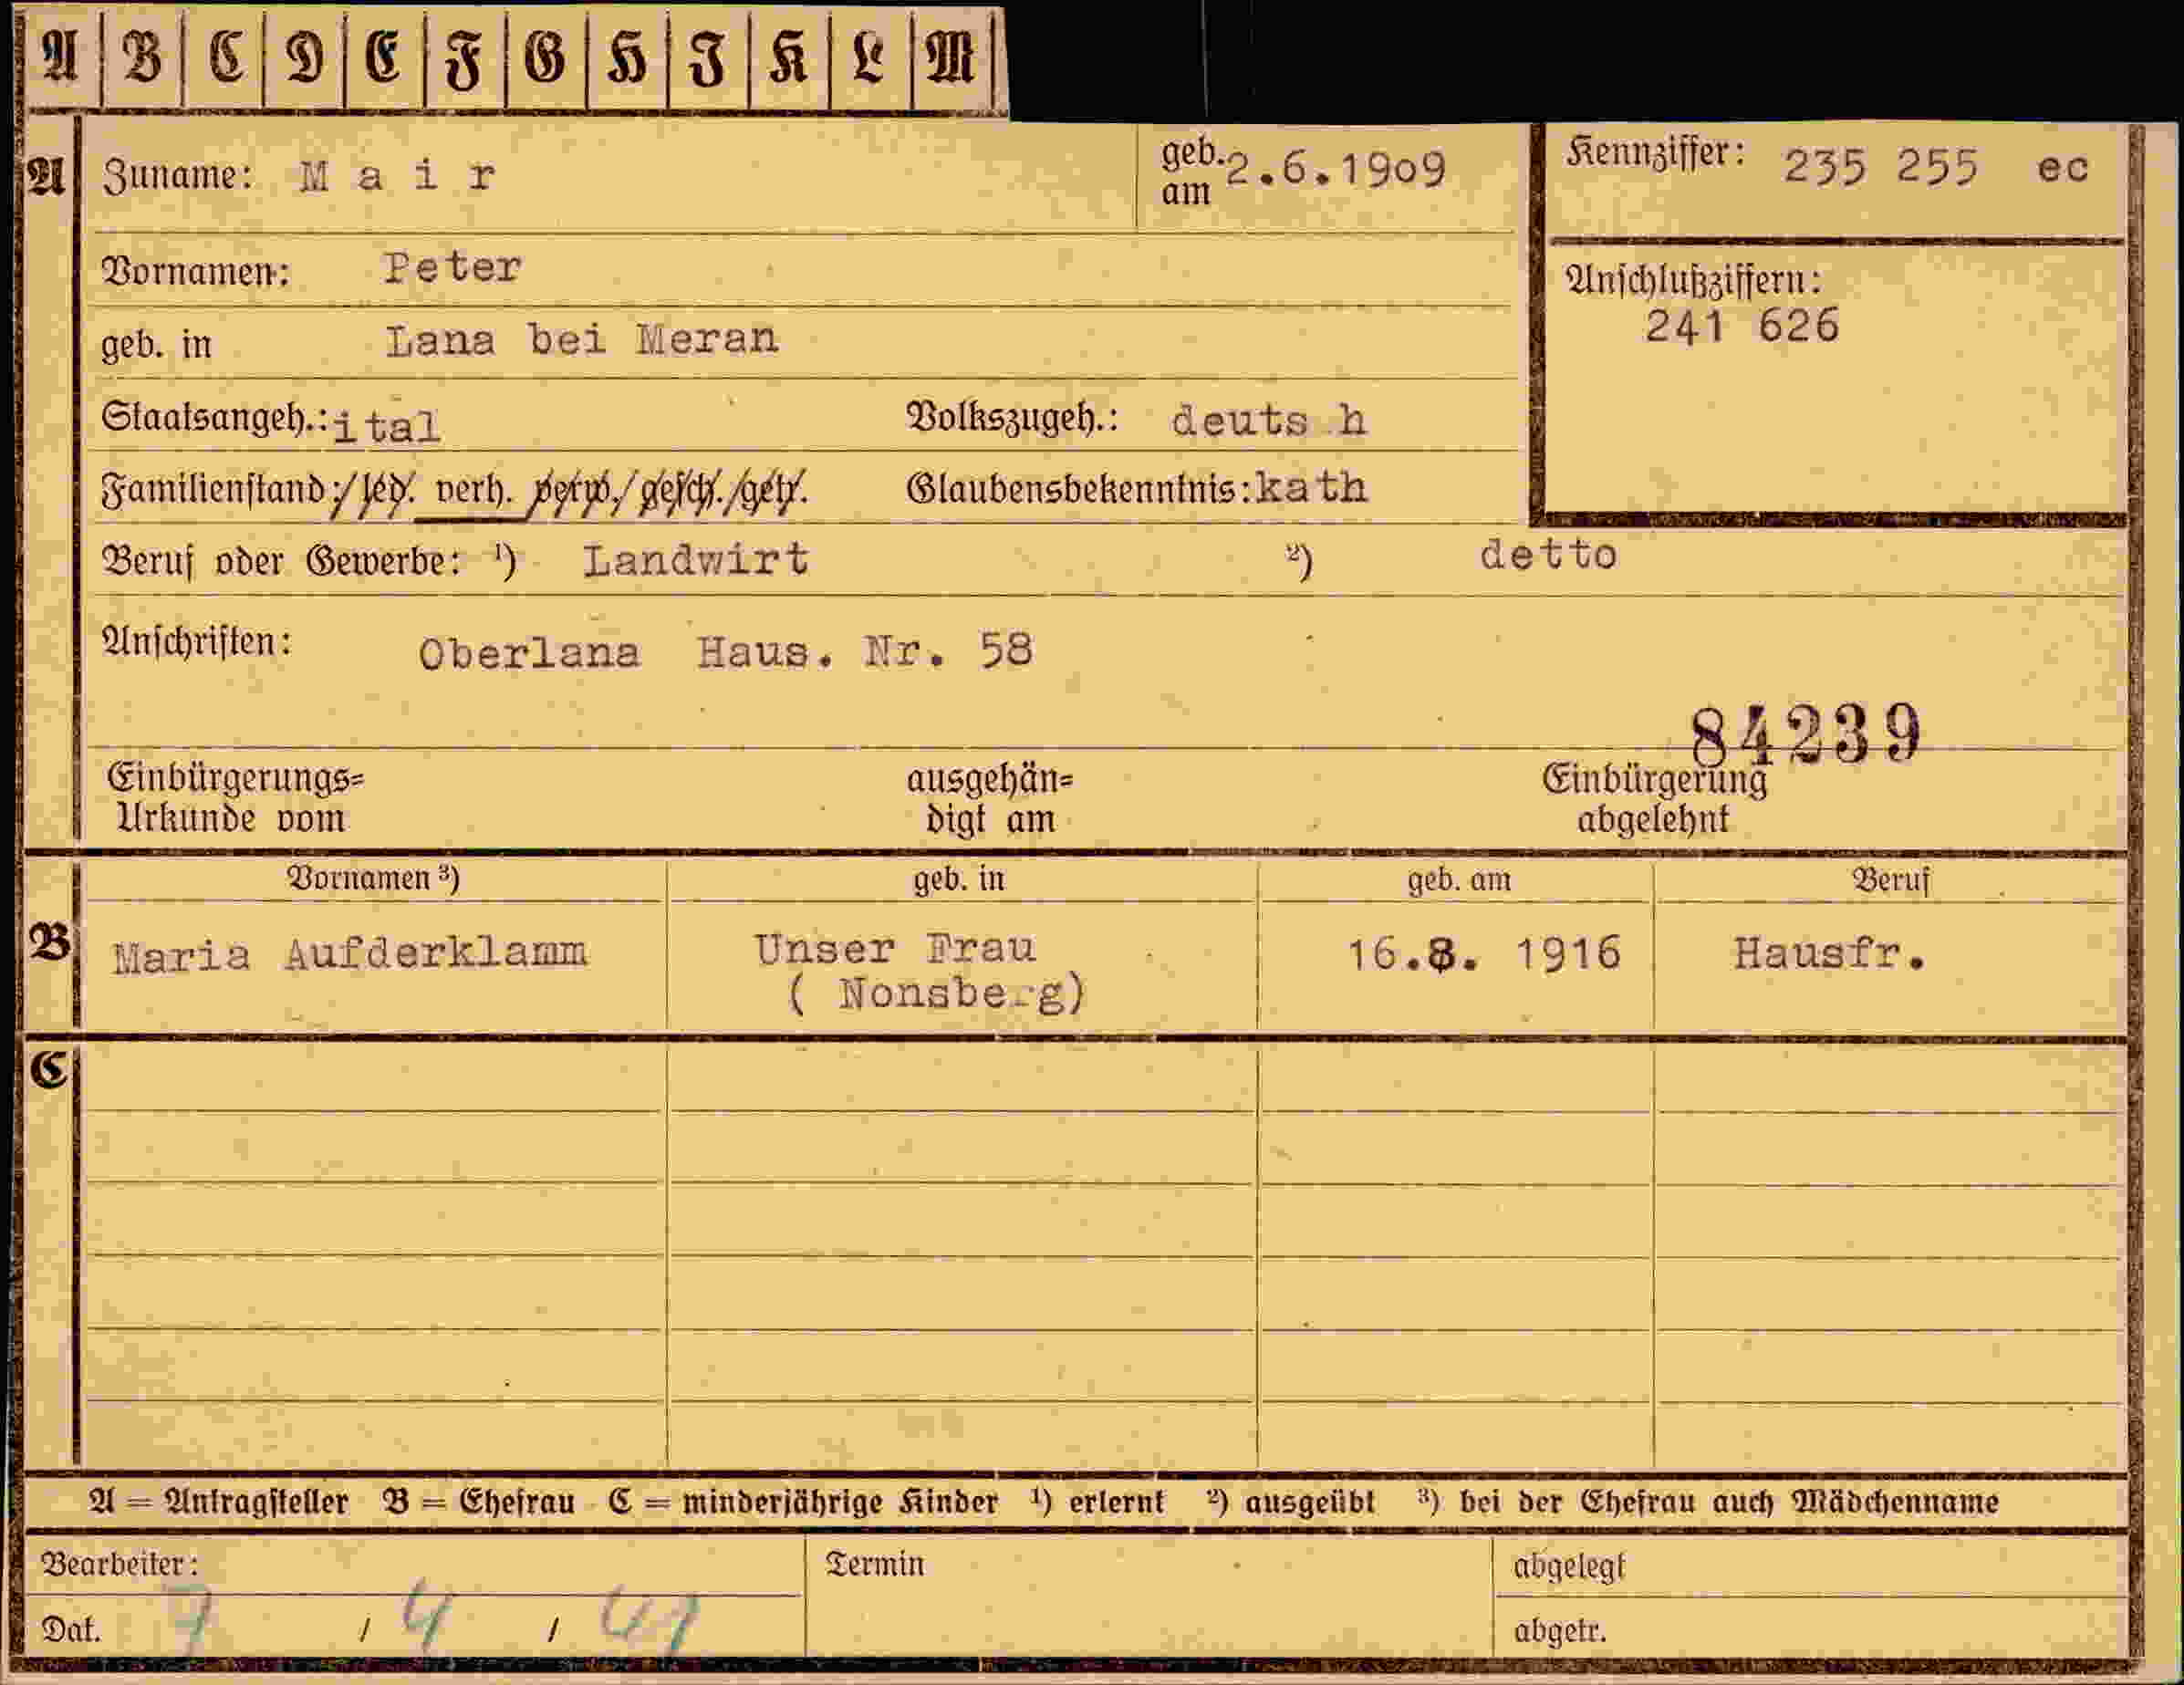 A B C D E F G H I K L M
A Zuname: M a i r geb. am 2.6.1909 Kennziffer: 235 255 ec
Vornamen: Peter
Anschlußziffern:
241 626
geb. in Lana bei Meran
Staatsangeh.: ital Volkszugeh.: deuts h
Familienstand: / led. verh. verw. / gesch. / getr. Glaubensbekenntnis: kath
Beruf oder Gewerbe: ¹) Landwirt ²) detto
Anschriften: Oberlana Haus. Nr. 58
84239
Einbürgerungs= ausgehän= Einbürgerung
Urkunde vom digt am abgelehnt
Vornamen ³) geb. in geb. am Beruf
B Maria Aufderklamm Unser Frau 16.8. 1916 Hausfr.
( Nonsberg)
C
A = Antragsteller B = Ehefrau C = minderjährige Kinder ¹) erlernt ²) ausgeübt ³) bei der Ehefrau auch Mädchenname
Bearbeiter: Termin abgelegt
Dat. 7 / 4 / 41 abgetr.